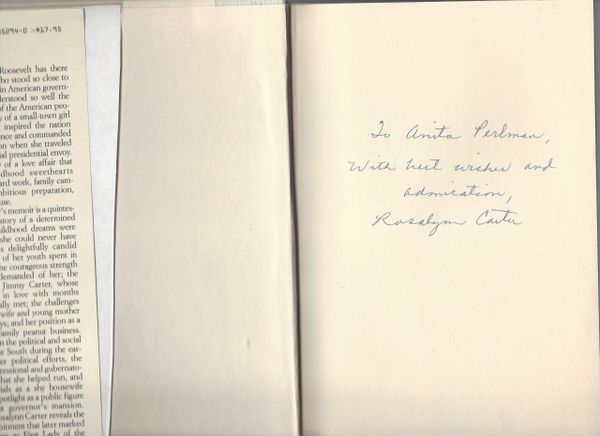 5294-0 >$17.95
Roosevelt has there
ho stood so close to
in American govern-
derstood so well the
of the American peo-
y of a small-town girl
inspired the nation
ence and commanded
on when she traveled
ial presidential envoy.
of a love affair that
dhood sweethearts
ard work, family cam-
mbitious preparation,
use.
's memoir is a quintes-
story of a determined
ildhood dreams were
she could never have
s delightfully candid
of her youth spent in
he courageous strength
demanded of her; the
Jimmy Carter, whose
in love with months
ally met; the challenges
wife and young mother
ys; and her position as a
amily peanut business.
n the political and social
e South during the ear-
er political efforts, the
ressional and gubernato-
hat she helped run, and
ials as a shy housewife
potlight as a public figure
a governor's mansion.
salynn Carter reveals the
mitment that later marked
as First Lady of the
To Anita Perlman,
With best wishes and
admiration,
Rosalynn Carter